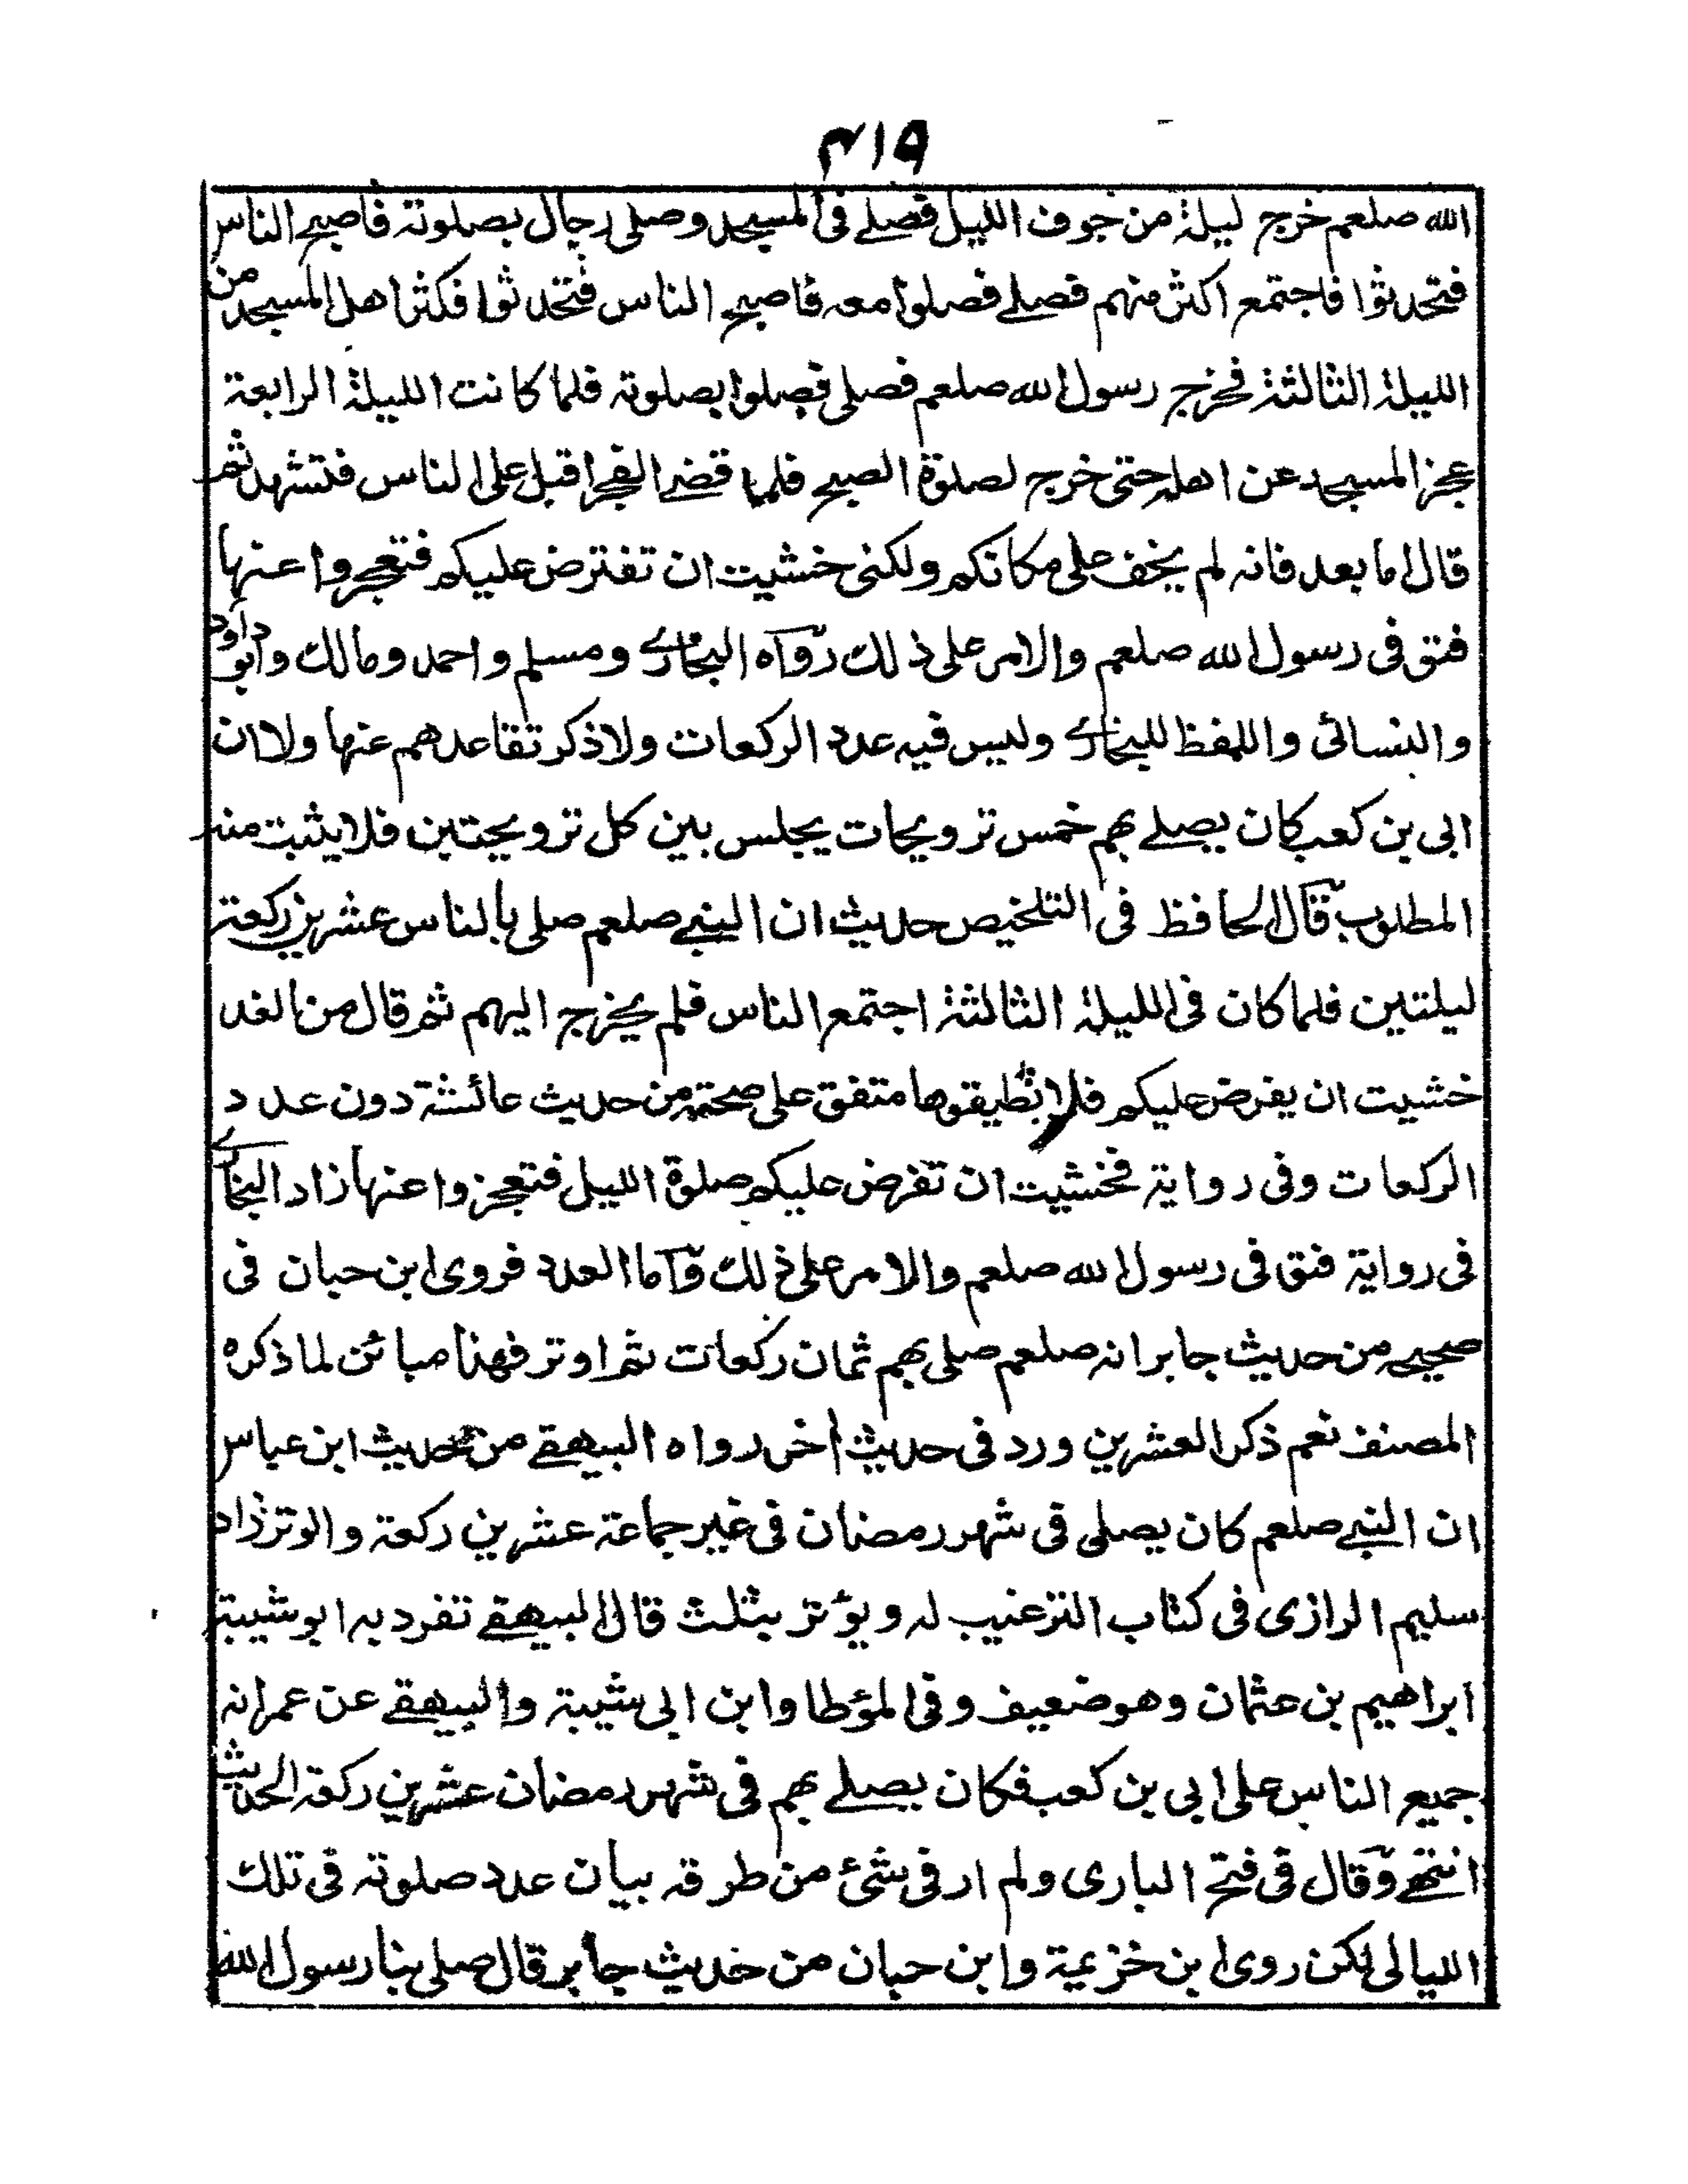 ٤١٩
الله صلعم خرج ليلة من جوف الليل فصلے فى المسجد وصلى رجال بصلوته فاصبح الناس
فتحدثوا فاجتمع اكثر منهم فصلے فصلوا معه فاصبح الناس فتحدثوا فكثر اهل المسجد من
الليلة الثالثة فخرج رسول الله صلعم فصلى فصلوا بصلوته فلما كانت الليلة الرابعة
عجز المسجد عن اهله حتى خرج لصلوة الصبح فلما قضے الفجر اقبل على الناس فتشهد ثم
قال اما بعد فانه لم يخف على مكانكم ولكنى خشيت ان تفترض عليكم فتعجزوا عنها
فتوفى رسول الله صلعم والامر على ذلك رواه البخارے ومسلم واحمد ومالك وابو داود
والنسائى واللفظ للبخارے وليس فيه عدد الركعات ولا ذكر تقاعدهم عنها ولا ان
ابى بن كعب كان يصلے بهم خمس ترويحات يجلس بين كل ترويحتين فلا يثبت منه
المطلوب قال الحافظ فى التلخيص حديث ان النبے صلعم صلى بالناس عشرين ركعة
ليلتين فلما كان فى الليلة الثالثة اجتمع الناس فلم يخرج اليهم ثم قال من الغد
خشيت ان يفرض عليكم فلا تطيقوها متفق على صحته من حديث عائشة دون عدد
الركعات وفى رواية فخشيت ان تفرض عليكم صلوة الليل فتعجزوا عنها زاد البخارے
فى رواية فتوفى رسول الله صلعم والامر على ذلك واما العدد فروى ابن حبان فى
صحيحه من حديث جابر انه صلعم صلى بهم ثمان ركعات ثم اوتر فهذا مبائن لما ذكره
المصنف نعم ذكر العشرين ورد فى حديث اخر رواه البيهقے من حديث ابن عباس
ان النبے صلعم كان يصلى فى شهر رمضان فى غير جماعة عشرين ركعة والوتر زاد
سليم الرازى فى كتاب الترغيب له ويؤتر بثلث قال البيهقے تفرد به ابو شيبة
ابراهيم بن عثمان وهو ضعيف وفى المؤطا وابن ابى شيبة والبيهقے عن عمر انه
جميع الناس على ابى بن كعب فكان يصلے بهم فى شهر رمضان عشرين ركعة الحديث
انتهے وقال فى فتح البارى ولم ار فى شئ من طرقه بيان عدد صلوته فى تلك
الليالى لكن روى ابن خزيمة وابن حبان من حديث جابر قال صلى بنا رسول الله